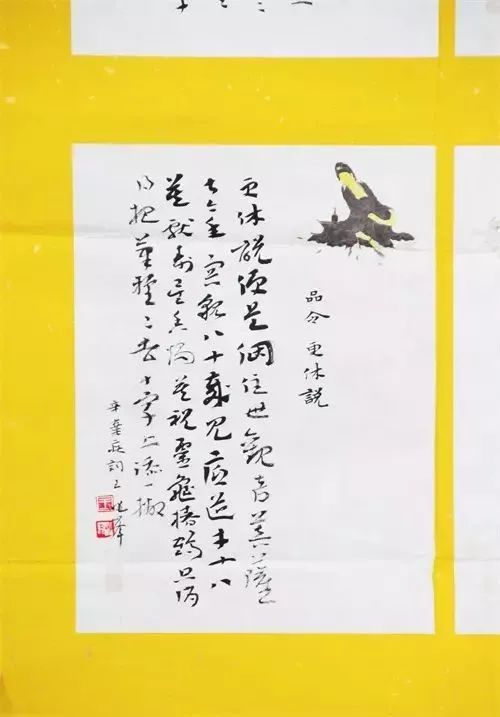 品令 更休説
更休説便是個住世觀音菩薩
甚今年容貌八十歲見底道才十八
莫獻壽星香燭莫祝靈龜椿鶴只消
得把筆輕々去十字上添一撇
辛棄疾詞 王